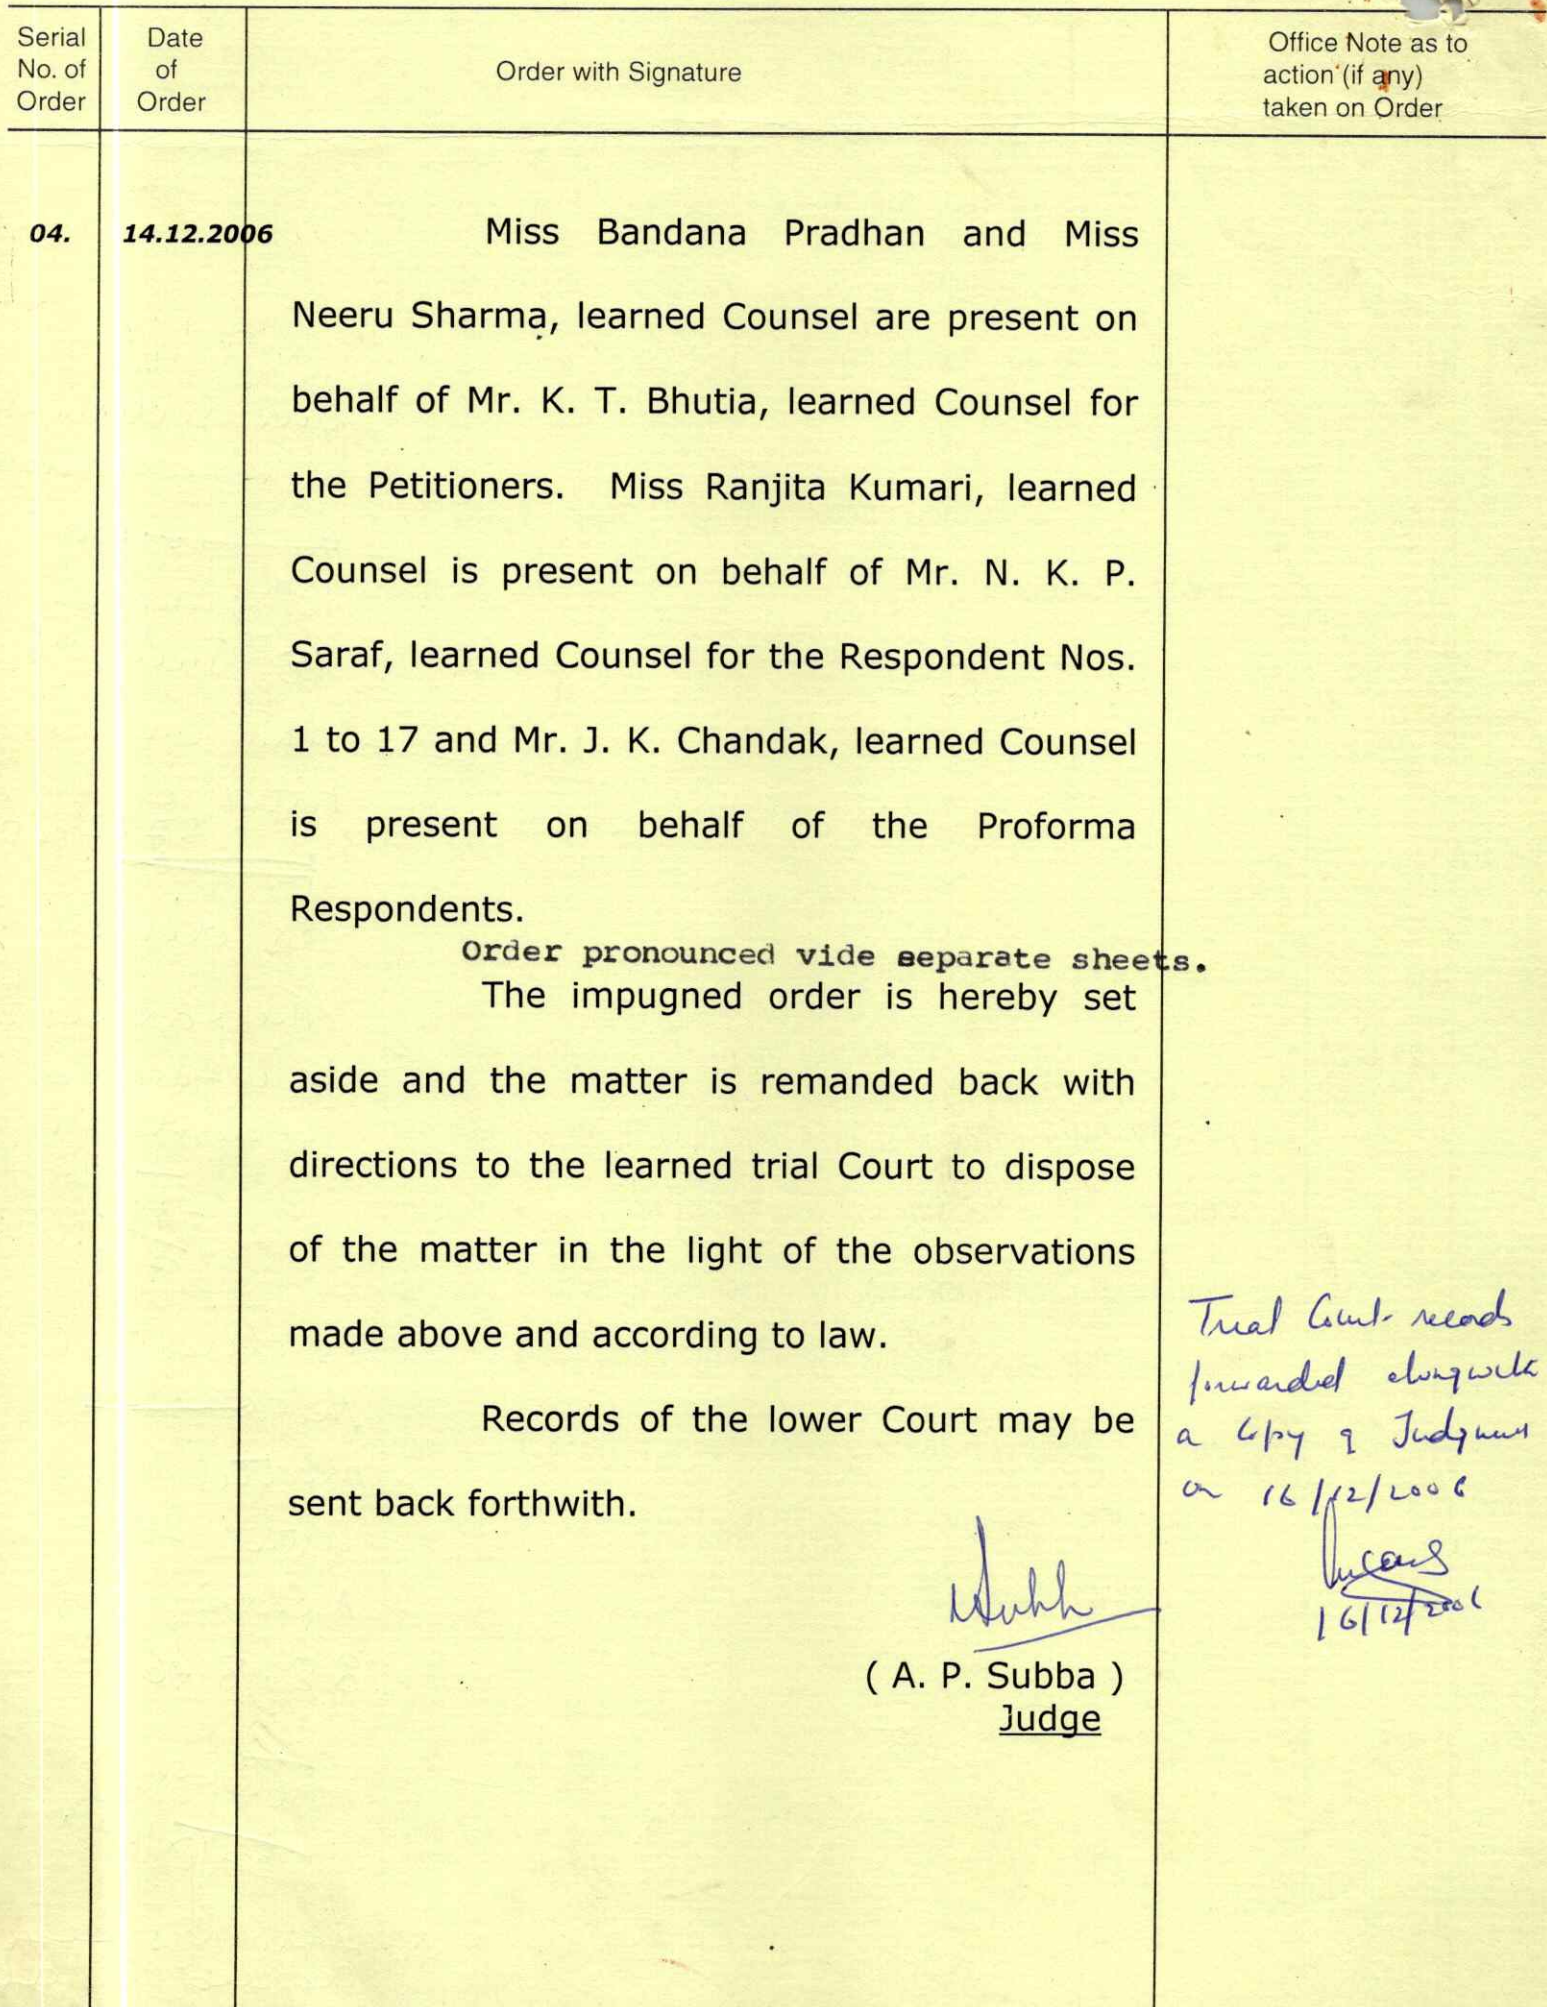 Serial No. of Order
Date of Order
Order with Signature
Office Note as to action (if any) taken on Order
04.
14.12.2006
Miss Bandana Pradhan and Miss
Neeru Sharma, learned Counsel are present on
behalf of Mr. K. T. Bhutia, learned Counsel for
the Petitioners. Miss Ranjita Kumari, learned
Counsel is present on behalf of Mr. N. K. P.
Saraf, learned Counsel for the Respondent Nos.
1 to 17 and Mr. J. K. Chandak, learned Counsel
is present on behalf of the Proforma
Respondents.
Order pronounced vide separate sheets.
The impugned order is hereby set
aside and the matter is remanded back with
directions to the learned trial Court to dispose
of the matter in the light of the observations
made above and according to law.
Records of the lower Court may be
sent back forthwith.
( A. P. Subba )
Judge
Trial Court records
forwarded alongwith
a Copy of Judgment
on 16/12/2006
16/12/2006